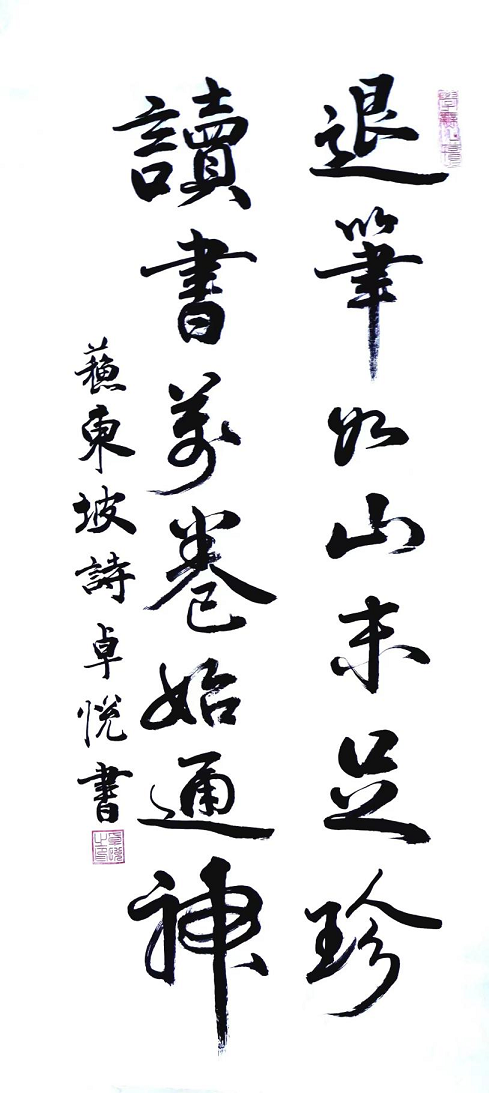 退筆如山未足珍
讀書萬卷始通神
蘇東坡詩卓悅書